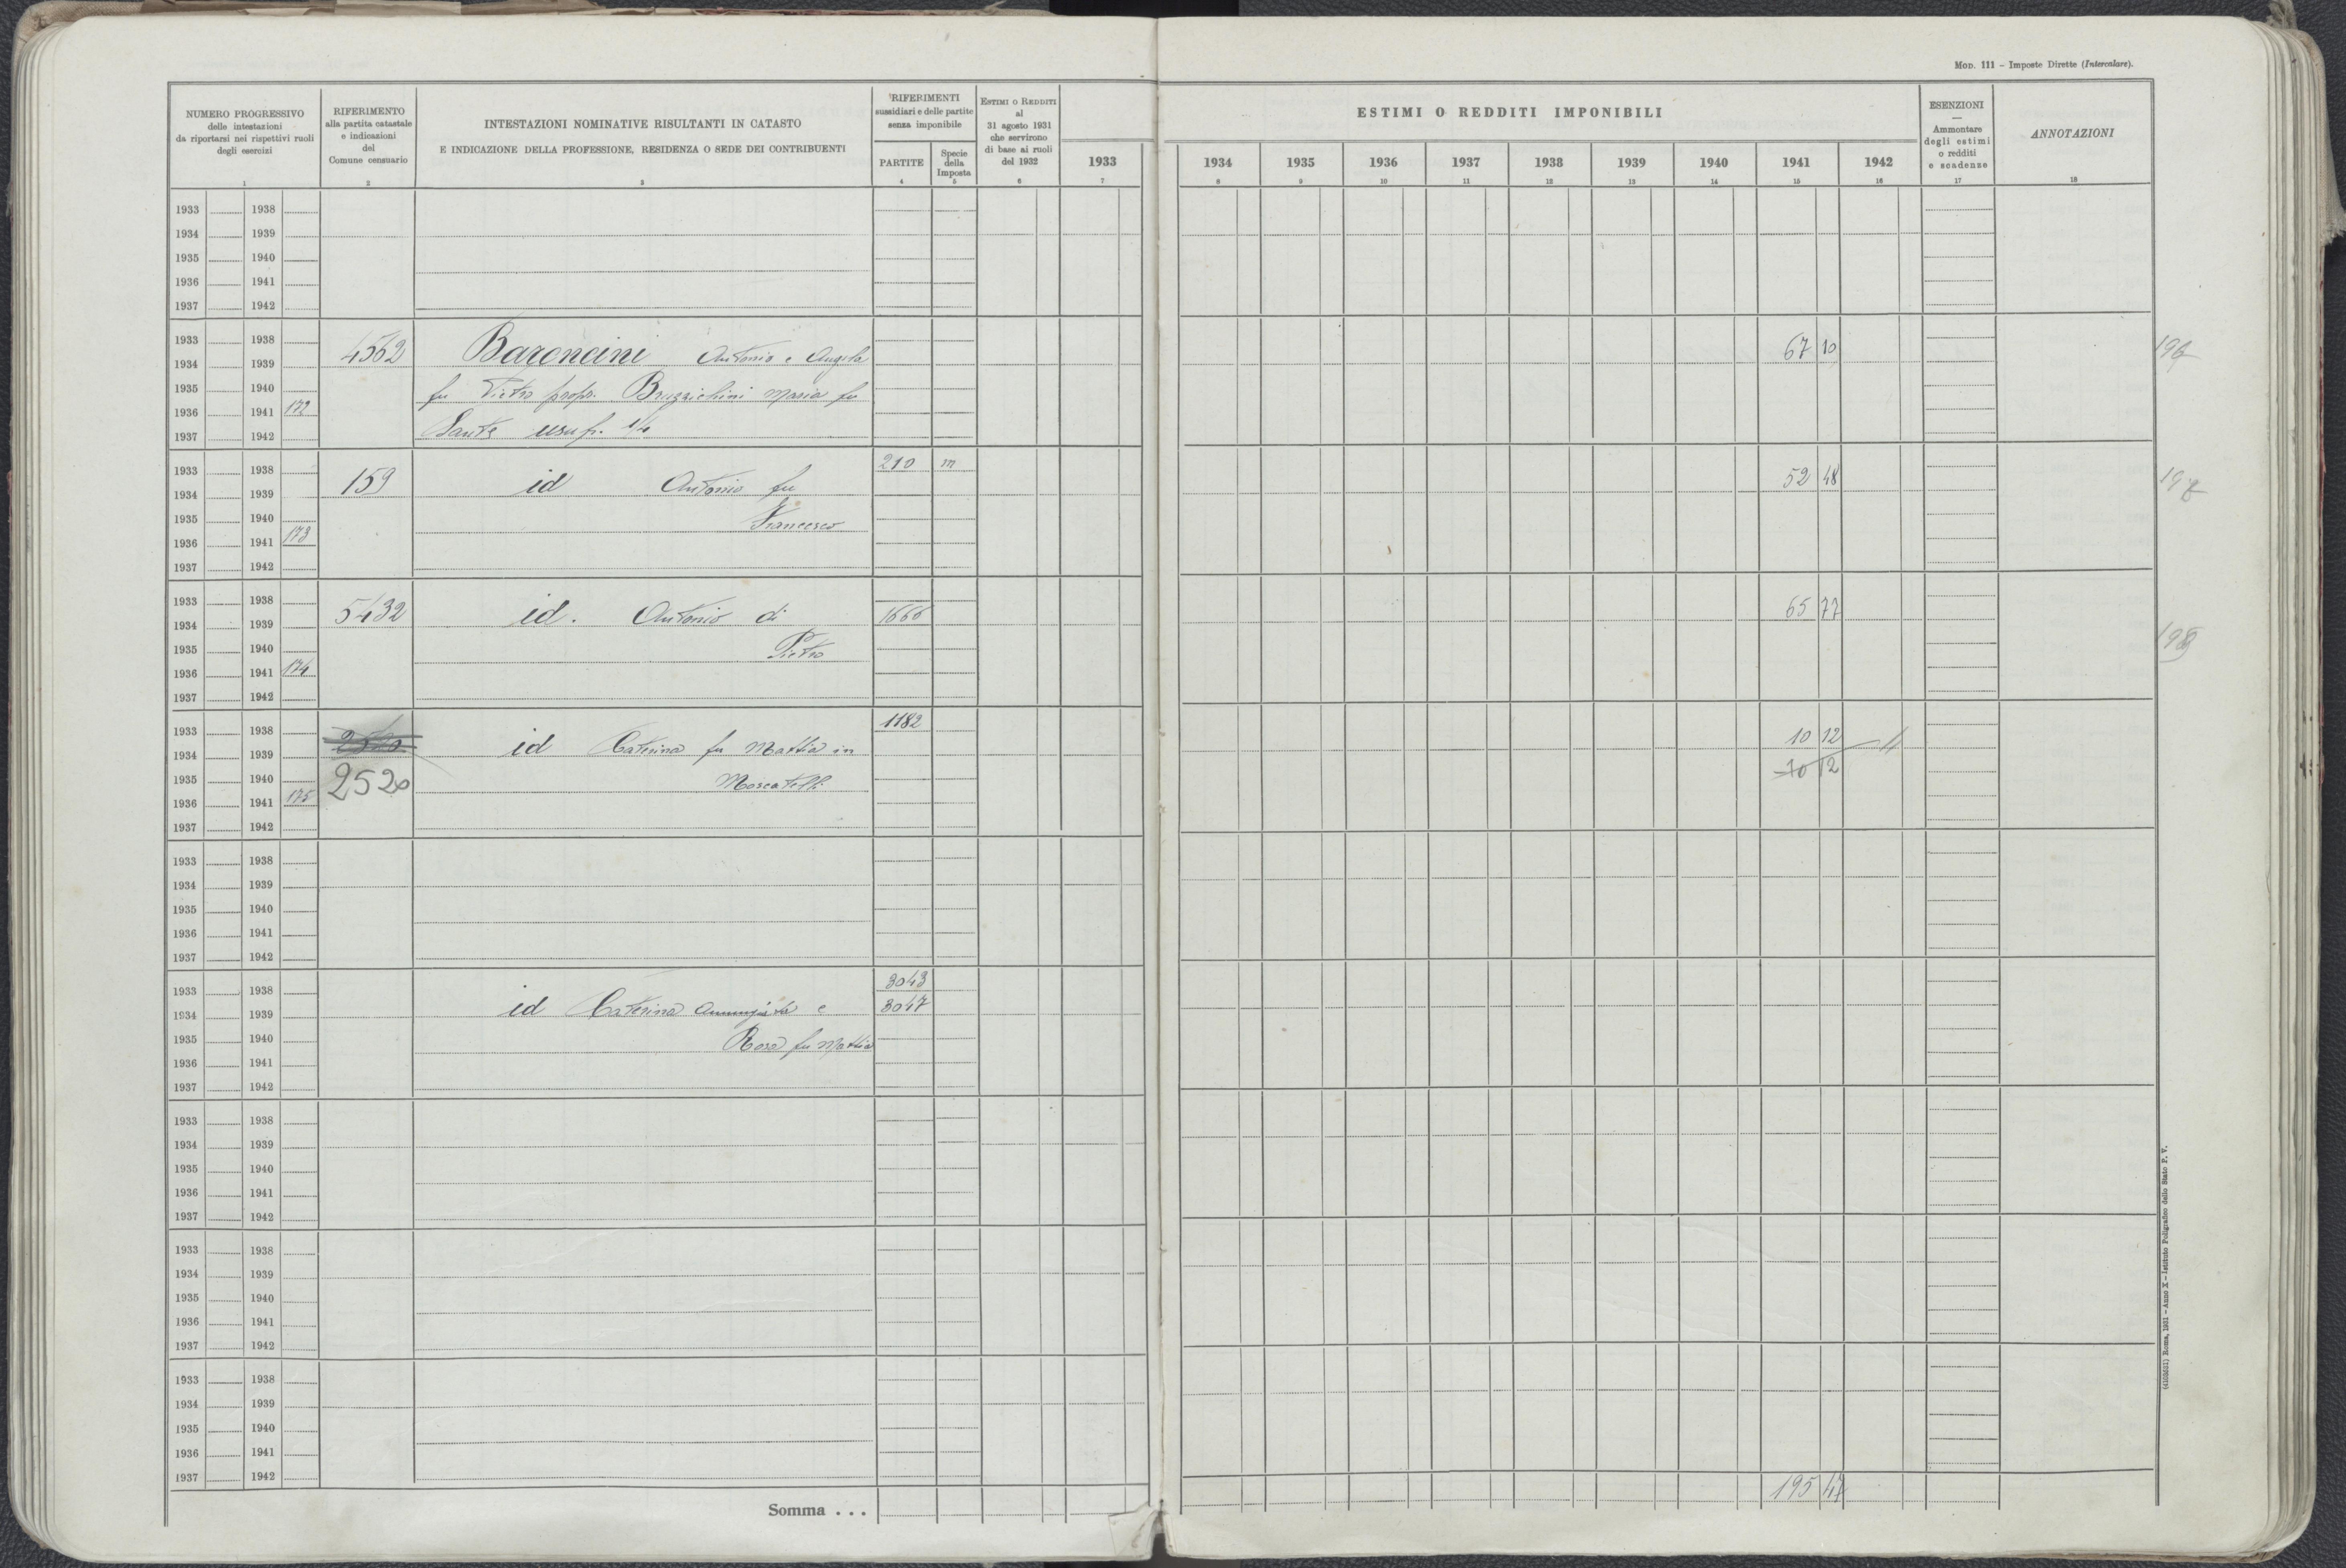 MOD. 111 – Imposte Dirette (Intercalare).
NUMERO PROGRESSIVO
delle intestazioni
da riportarsi nei rispettivi ruoli
degli esercizi
1
RIFERIMENTO
alla partita catastale
e indicazioni
del
Comune censuario
2
INTESTAZIONI NOMINATIVE RISULTANTI IN CATASTO
E INDICAZIONE DELLA PROFESSIONE, RESIDENZA O SEDE DEI CONTRIBUENTI
3
RIFERIMENTI
sussidiari e delle partite
senza imponibile
PARTITE
4
Specie
della
Imposta
5
ESTIMI O REDDITI
al
31 agosto 1931
che servirono
di base ai ruoli
del 1932
6
ESTIMI O REDDITI IMPONIBILI
1933 1934 1935 1936 1937 1938 1939 1940 1941 1942
7 8 9 10 11 12 13 14 15 16
ESENZIONI
—
Ammontare
degli estimi
o redditi
e scadenze
17
ANNOTAZIONI
18
1933 1938
1934 1939
1935 1940
1936 1941
1937 1942
1933 1938
1934 1939 4562 Baroncini Antonio e Angela 67 10
1935 1940 fu Pietro propr. Bruzzichini Maria fu
1936 1941 172
1937 1942 Sante usuf. 1/4
1933 1938 210 m
1934 1939 159 id Antonio fu 52 48
1935 1940 Francesco
1936 1941 173
1937 1942
1933 1938
1934 1939 5432 id. Antonio di 1666 65 77
1935 1940 Pietro
1936 1941 174
1937 1942
1933 1938 1182
1934 1939 2520 id Caterina fu Mattia in 10 12
1935 1940 2520 Moscatelli 10 12
1936 1941 175
1937 1942
1933 1938
1934 1939
1935 1940
1936 1941
1937 1942
1933 1938 3043
1934 1939 id Caterina Annunziata e 3047
1935 1940 Rosa fu Mattia
1936 1941
1937 1942
1933 1938
1934 1939
1935 1940
1936 1941
1937 1942
1933 1938
1934 1939
1935 1940
1936 1941
1937 1942
1933 1938
1934 1939
1935 1940
1936 1941
1937 1942
Somma . . . 195 47
(4103631) Roma, 1931 – Anno X – Istituto Poligrafico dello Stato P. V.